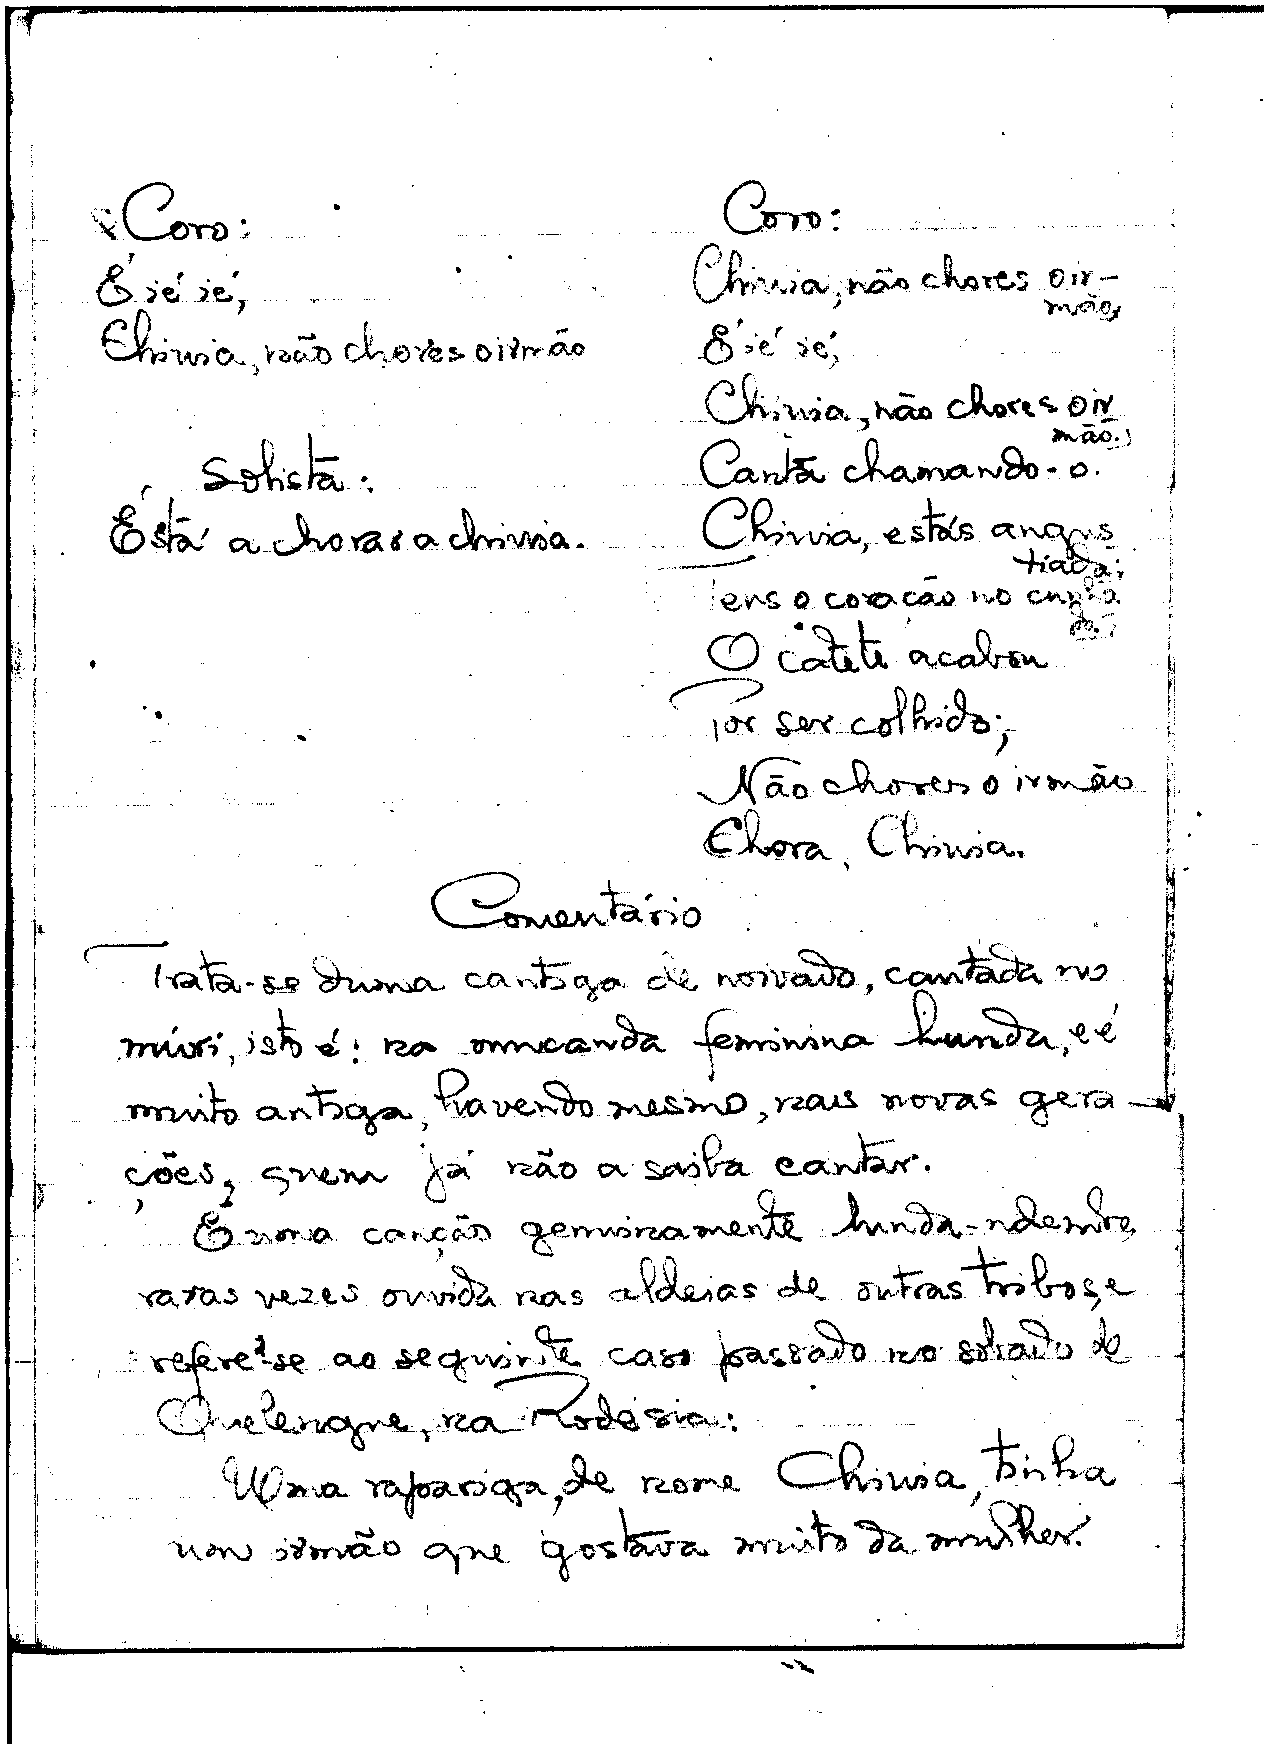 Coro:
É ié ié,
Chinia, não chores o irmão
Solista:
Está a chorar a Chinia.
Coro:
Chinia, não chores o ir-
mão,
É ié ié,
Chinia, não chores o ir
mão;
Canta chamando-o.
Chinia, estás angus
tiada;
Tens o coração no
O catete acabou
Por ser colhido;
Não chores o irmão
Chora, Chinia.
Comentário
Trata-se duma cantiga de noivado, cantada no
isto é: na mucanda feminina lunda, e é
muito antiga, havendo mesmo, nas novas gera
ções, quem já não a saiba cantar.
É uma canção genuinamente lunda-ndembe,
raras vezes ouvida nas aldeias de outras tribos, e
refere-se ao seguinte caso passado no sobado de
Quelengue, na Rodésia:
Uma rapariga, de nome Chinia, tinha
um irmão que gostava muito da mulher.